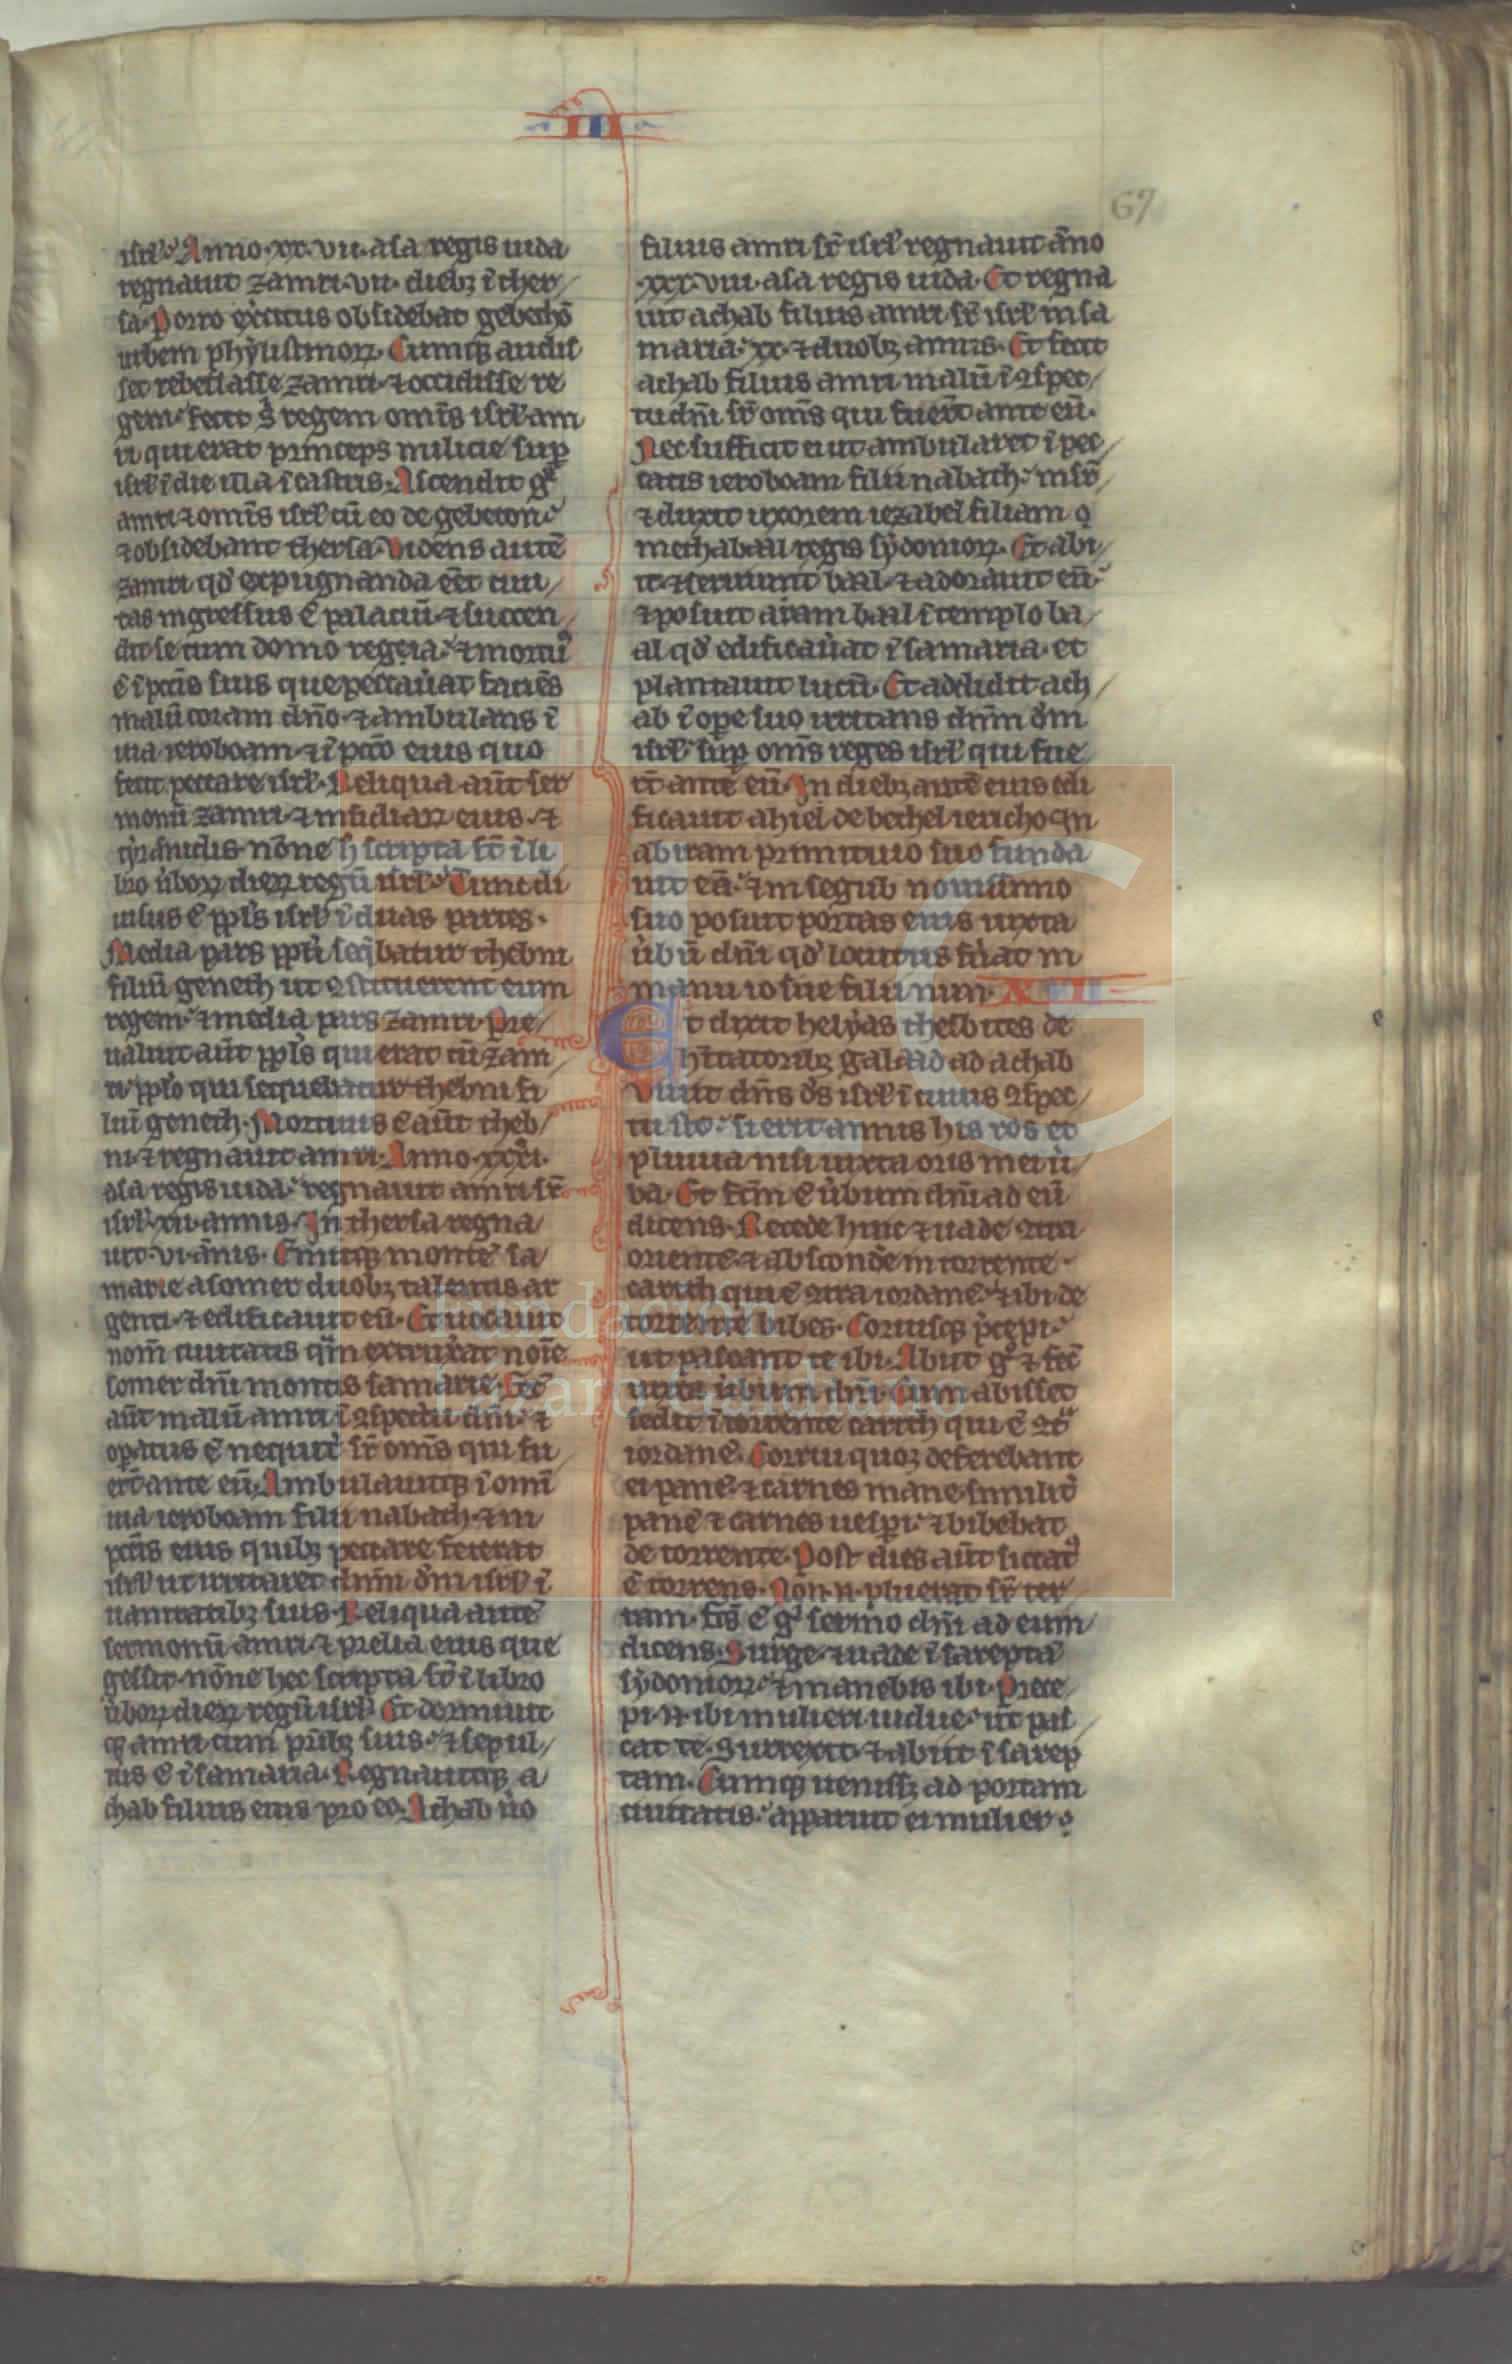 III
67
isrl'. Anno .xx.vii. asa regis iuda
regnauit zamri .vii. dieb; ĩ ther/
sa. Porro exc̾citus obsidebat gebethõ
urbem phylistinoꝝ. Cumq; audis
set rebellasse zamri ⁊ occidisse re
gem. fecit s̾ regem om̃s isrl' am
ri qui erat princeps milicie suꝑ
isrl' ĩ die illa ĩ castris. Ascendit gͦ
amri ⁊ om̃s isrl' cũ eo de gebeton.
⁊ obsidebant thersa. Uidens autẽ
zamri qd̾ expugnanda eẽt ciui/
tas ingressus ẽ palaciũ ⁊ succen/
dit se cum domo regeia. ⁊ mortu᾽
ẽ ĩ pctĩs suis que peccau̾at faciẽs
malũ coram dño. ⁊ ambulans ĩ
uia ieroboam. ⁊ ĩ pctõ eius quo
fecit peccare isrl'. Reliqua aũt ser
monũ zamri. ⁊ insidiaꝝ eius. ⁊
tyrãnidis. nõne h̾ scripta sũt ĩ li
bro u̾boꝝ dieꝝ regũ isrl'. Tunc di
uisus ẽ ppl̾s isrl' ĩ duas partes.
Media pars ppl̾i seq̃batur thebni
filiũ geneth ut ꝯstituerent eum
regem. ⁊ media pars zamri. Pre/
ualuit aũt ppl̾s qui erat cũ zam/
ri. ppl̾o qui sequebatur thebni fi
liũ geneth. Mortuus ẽ aũt theb/
ni. ⁊ regnauit amri. Anno .xxxi.
asa regis iuda. regnauit amri sr̃
isrl' .xii. annis. In thersa regna/
uit .vi. ãnis. Emitq; montẽ sa/
marie a somer duob; talentis ar
genti. ⁊ edificauit eũ. Et uocauit
nom̃ ciuitatis quã extrux̾at noĩe
somer dñi montis samarie. Fecit
aũt malũ amri ĩ ꝯspectu dñi. ⁊
opatus ẽ nequit̾ sr̃ om̃s qui fu/
er̃t ante eũ. Ambulauitq; ĩ omĩ
uia ieroboam filii nabath. ⁊ in
pctĩs eius quib; peccare fecerat
isrl' ut irritaret dñm dm̃ isrl' ĩ
uanitatib; suis. Reliqua autẽ
sermonũ amri ⁊ prelia eius que
gessit. nõne hec scripta sũt ĩ libro
u̾boꝝ dieꝝ regũ isrl'. Et dormiuit
q; amri cum patrib; suis. ⁊ sepul/
tus ẽ ĩ samaria. Regnauitq; a/
chab filius eius pro eo. Achab u̾o
filius amri sr̃ isrl' regnauit ãno
.xxx.viii. asa regis iuda. Et regna
uit achab filius amri sr̃ isrl' in sa
maria. xx. ⁊ duob; annis. Et fecit
achab filius amri malũ ĩ ꝯspec/
tu dñi sr̃ om̃s qui fuer̃t ante eũ.
Nec suffecit ei ut ambularet ĩ pec/
catis ieroboam filii nabath. insr̃/
⁊ duxit uxorem iezabel filiam
methabaal regis sydonioꝝ. Et abi/
it. ⁊ seruiuit baal. ⁊ adorauit eũ.
⁊ posuit aram baal ĩ templo ba/
al qd̾ edificau̾at ĩ samaria. et
plantauit lucũ. Et addidit ach/
ab ĩ ope suo irritans dñm dm̃
isrl'. suꝑ om̃s reges isrl' qui fue
rũt ante eũ. In dieb; autẽ eius edi
ficauit ahiel de bethel iericho. In
abiram primitiuo suo funda
uit eã. ⁊ in segub nouissimo
suo posuit portas eius iuxta
u̾bũ dñi qd̾ locutus fu̾at in
manu iosue filii nun. XVII
Et dixit helyas thesbites de
hĩtatorib; galaad ad achab
Viuit dñs ds̾ isrl' ĩ cuius ꝯspec/
tu sto. si erit annis his ros et
pluuia nisi iuxta oris mei u̾
ba. Et fctm̃ ẽ u̾bum dñi ad eũ
dicens. Recede hinc ⁊ uade ꝯtra
orientẽ. ⁊ absconde in torrente
carith qui ẽ ꝯtra iordanẽ. ⁊ ibi de
torrente bibes. Coruisq; p̾cepi.
ut pascant te ibi. Abiit gͦ ⁊ fec̾
iuxta u̾bum dñi. Cum abisset
sedit ĩ torrente carith qui ẽ ꝯt̾
iordanẽ. Corui quoq; deferebant
ei panẽ. ⁊ carnes mane similit̾
panẽ ⁊ carnes uesp̾i. ⁊ bibebat
de torrente. Post dies aũt siccat᾽
ẽ torrens. Non .n. pluerat sr̃ ter/
ram. fcs̃ ẽ gͦ sermo dñi ad eum/
dicens. Surge ⁊ uade ĩ sareptã
sydonioꝝ. ⁊ manebis ibi. Prece/
pi .n. ibi mulieri uidue. ut pas/
cat te. Surrexit. ⁊ abiit ĩ sarep
tam. Cumq; uenissz ad portam
ciuitatis. apparuit ei mulier
Fundación
Lázaro Galdiano